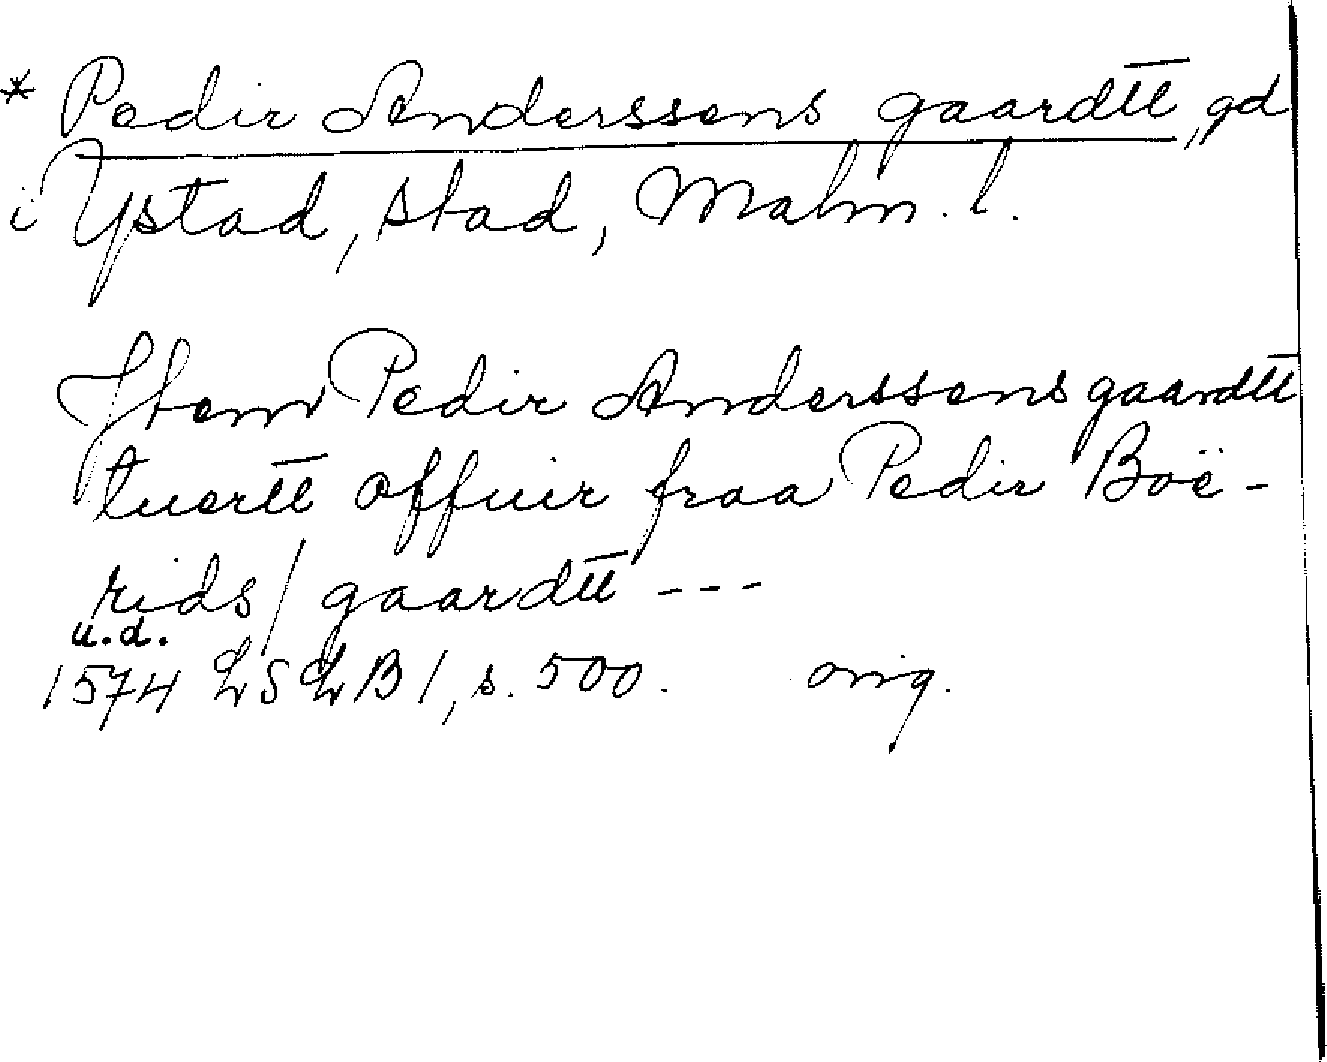 * Pedir Anderssens gaardtt, gd
i Ystad, stad, Malm. l.
Jtem Pedir Anderssens gaardtt
tuertt offuir fraa Pedir Boë-
rids/gaardtt ---
u.d.
1574 LSLB1, s. 500. orig.